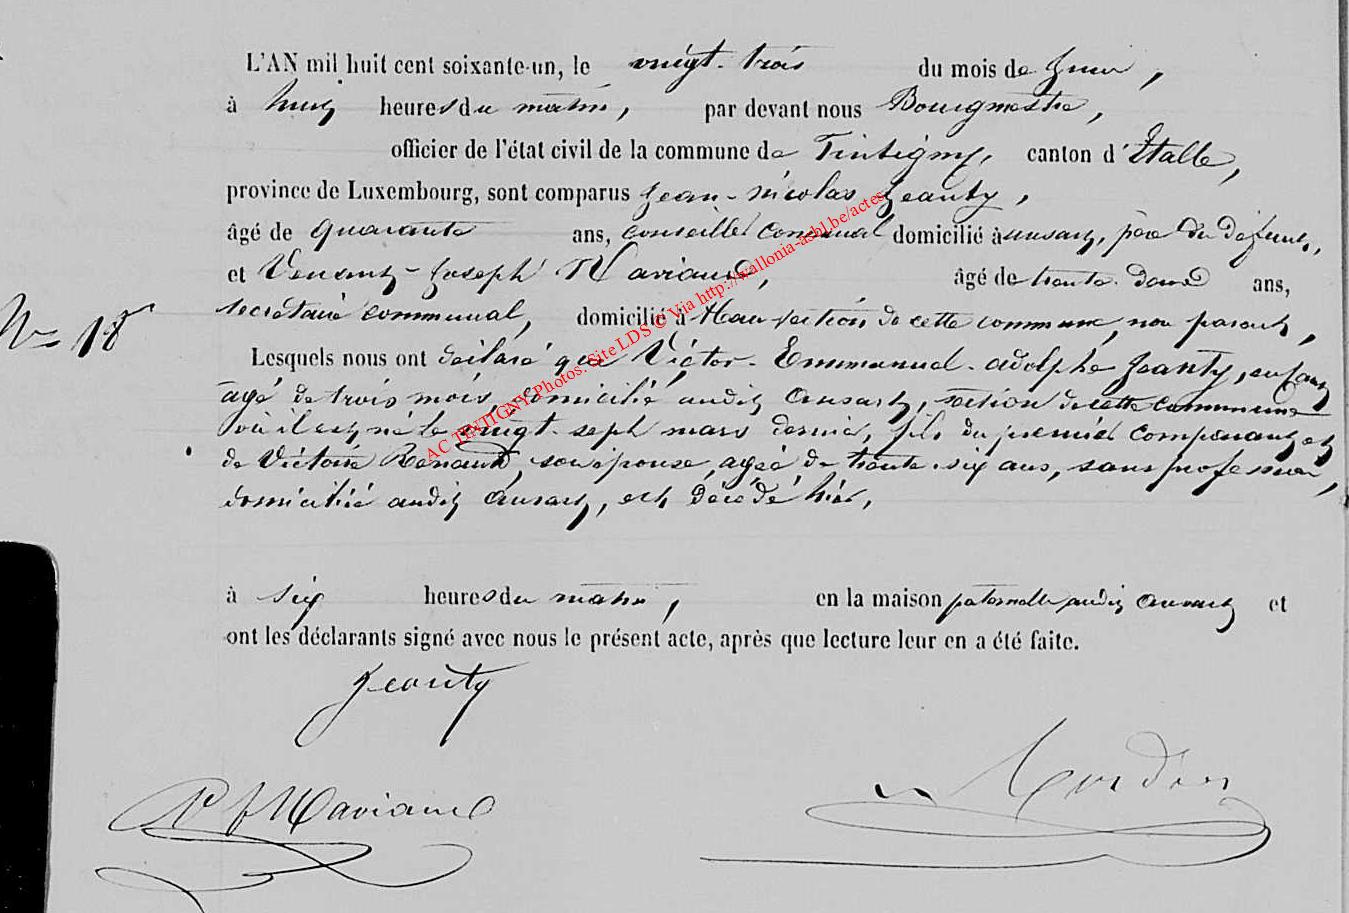 L'AN mil huit cent soixante-un, le vingt-trois du mois de Juin,
à huit heures du matin, par devant nous Bourgmestre,
officier de l'état civil de la commune de Tintigny, canton d'Étalle,
province de Luxembourg, sont comparus Jean-Nicolas Jeanty,
âgé de quarante ans, conseiller communal domicilié à ansart, père du défunt,
et Vincent-Joseph Maviaux, âgé de trente-deux ans,
N° 18
secrétaire communal, domicilié à section de cette commune, non parent,
Lesquels nous ont déclaré que Victor-Emmanuel-adolphe Jeanty, enfant
âgé de trois mois, domicilié audit Ansart, section de cette commune
où il est né le vingt-sept mars dernier, fils du premier comparant et
de Victoire Renauld, son épouse, agée de trente-six ans, sans profession,
domiciliée audit Ansart, est décédé hier,
à six heures du matin, en la maison paternelle audit Ansart et
ont les déclarants signé avec nous le présent acte, après que lecture leur en a été faite.
Jeanty
AC TINTIGNY Photos: Site LDS © Via http://wallonia-asbl.be/actes